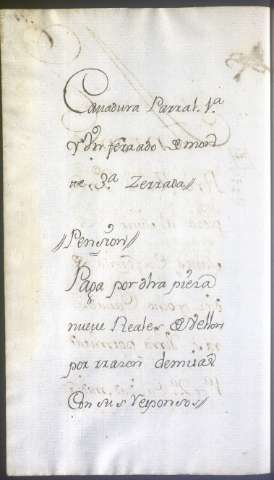 Cavadura Parral. 1.a
y Un ferrado de mon
te 3.a Zerrada//
//Pension//
Paga por dha pieza
nueve Reales de Vellon
por rrazon de missas
Con sus responsos//